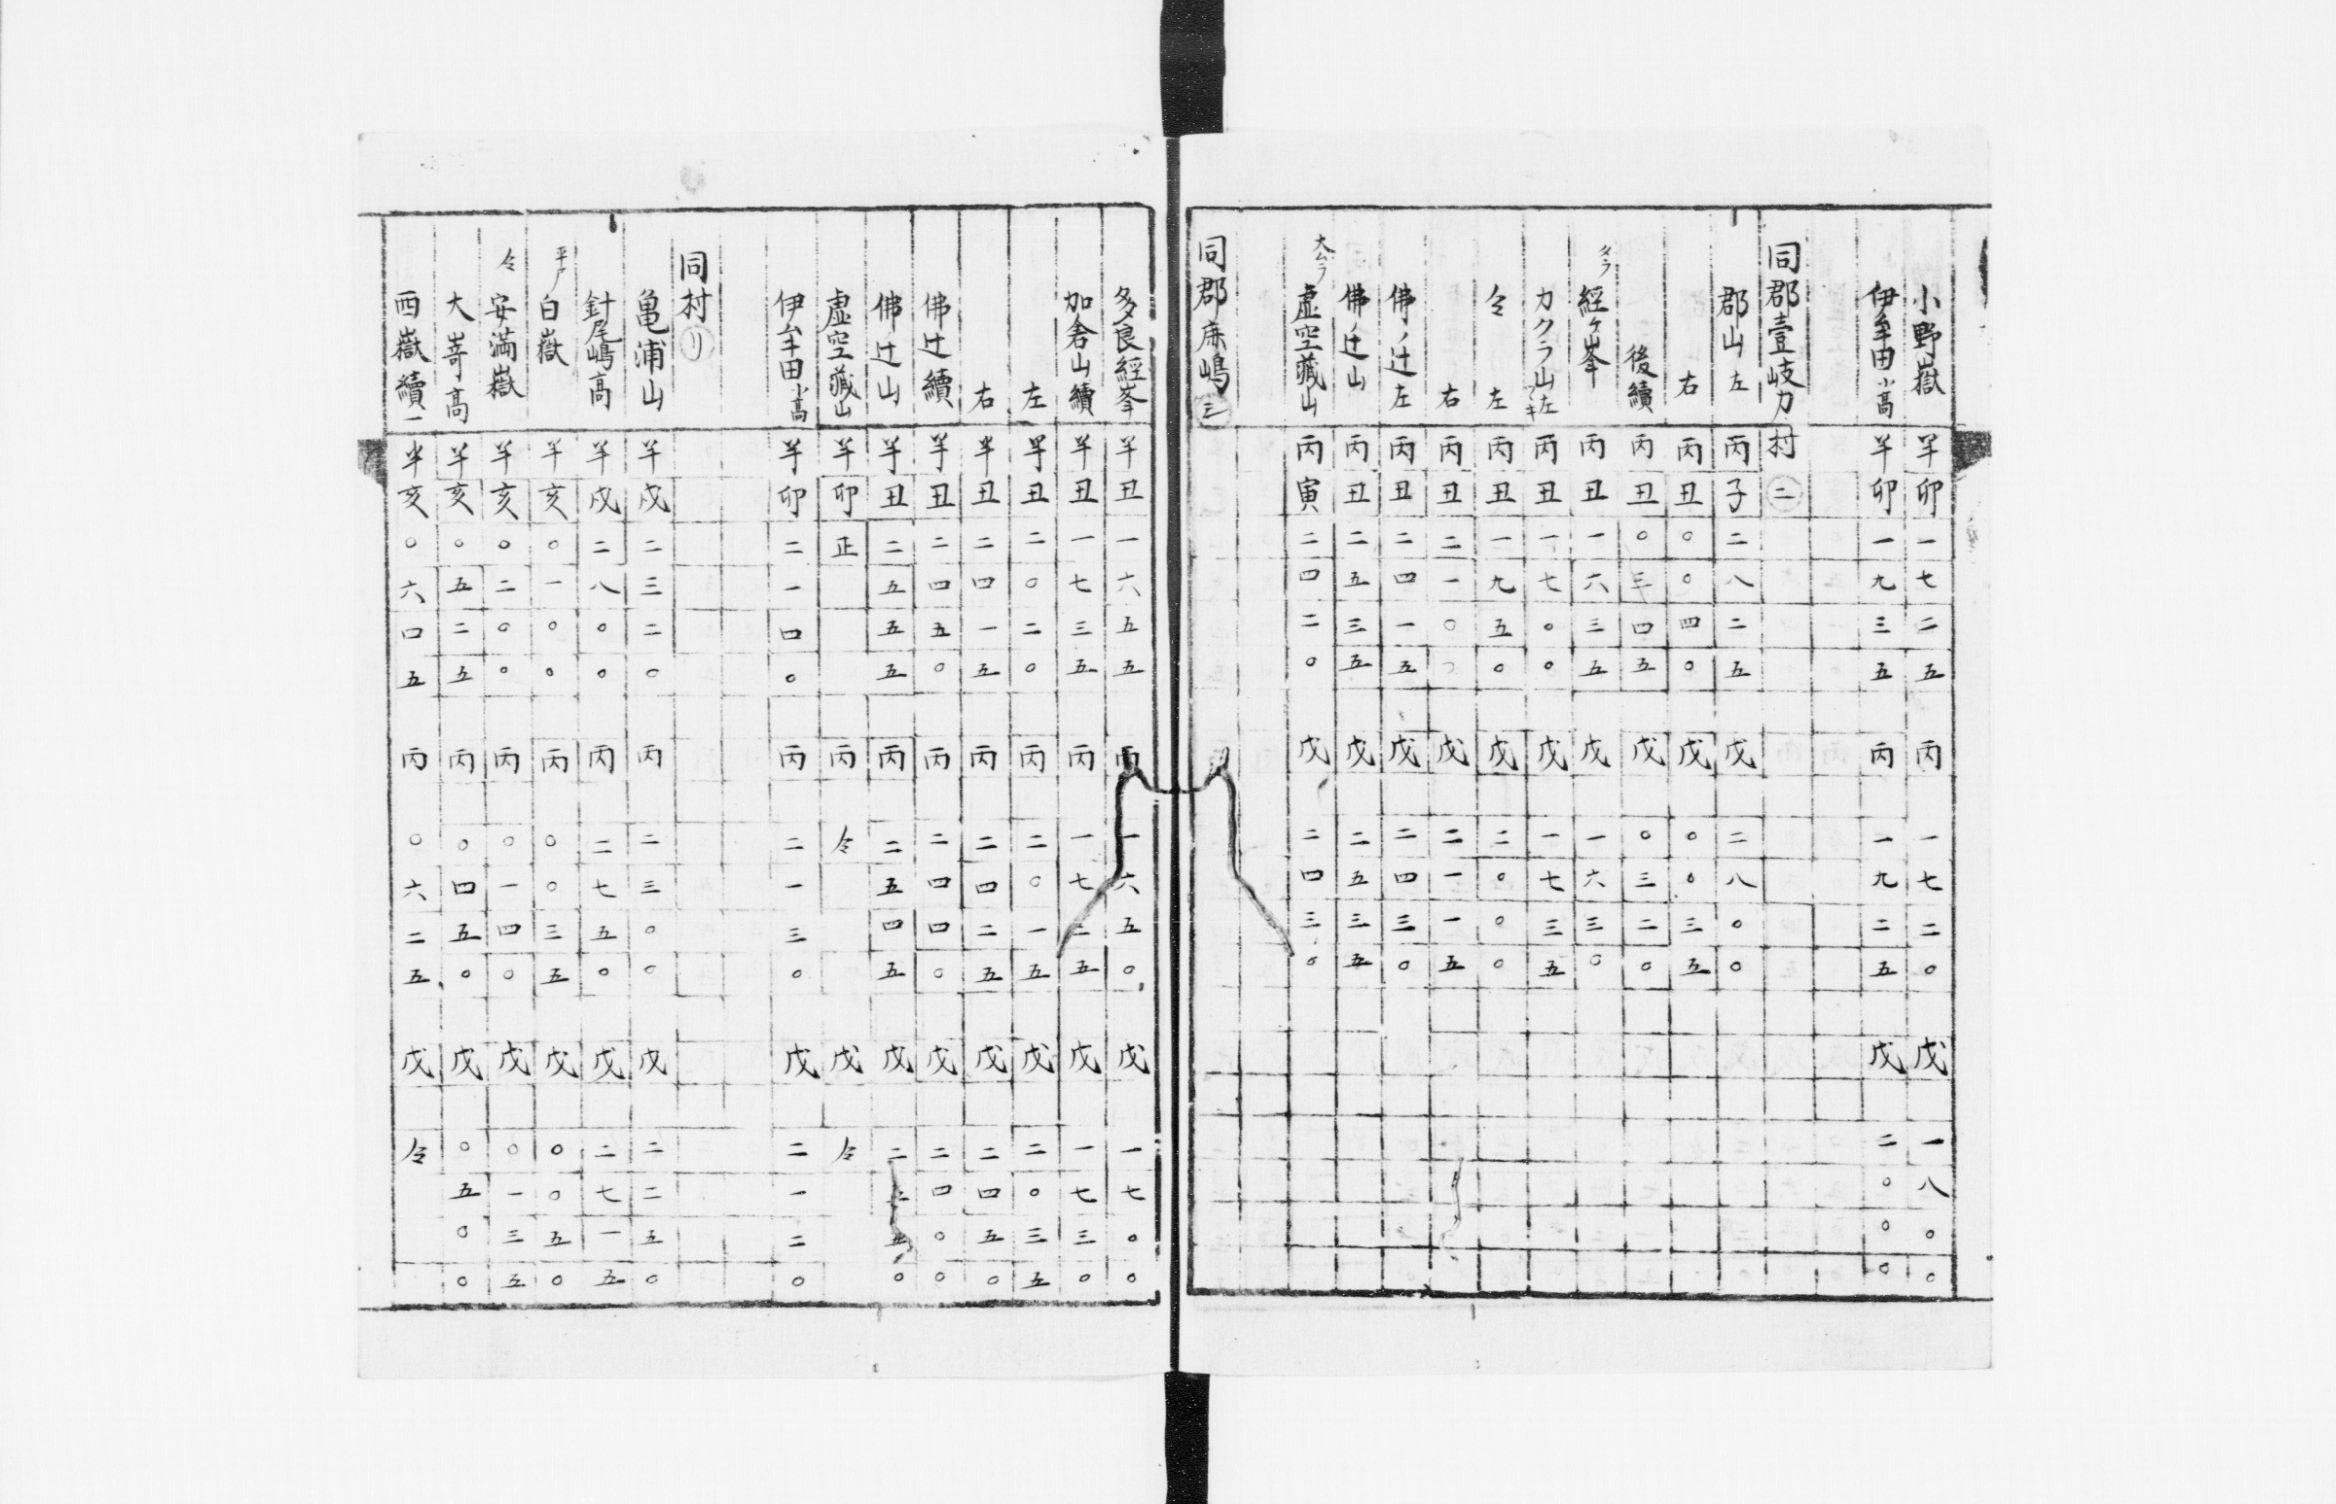 小野嶽 半卯 一七二五 丙 一七二〇 戊 一八〇〇
伊牟田小高 半卯 一九三五 丙 一九二五 戊 二〇〇〇
同郡壹岐力村 二
郡山左 丙子 二八二五 戊 二八〇〇
右 丙丑 〇〇四〇 戊 〇〇三五
後續 丙丑 〇三四五 戊 〇三二〇
タラ 經ヶ峯 丙丑 一六三五 戊 一六三〇
カクラ山左 丙丑 一七〇〇 戊 一七三五
仝 左 丙丑 一九五〇 戊 二〇〇〇
右 丙丑 二一〇〇 戊 二一一五
佛ノ辻左 丙丑 二四一五 戊 二四三〇
佛ノ辻山 丙丑 二五三五 戊 二五三五
大ムラ 虚空藏山 丙寅 二四二〇 戊 二四三〇
同郡麻嶋 三
多良經峯 半丑 一六五五 丙 一六五〇 戊 一七〇〇
加舎山續 半丑 一七三五 丙 一七二五 戊 一七三〇
左 半丑 二〇二〇 丙 二〇一五 戊 二〇三五
右 半丑 二四一五 丙 二四二五 戊 二四五〇
佛辻續 半丑 二四五〇 丙 二四四〇 戊 二四〇〇
佛辻山 半丑 二五五五 丙 二五四五 戊 二五五〇
虚空藏山 半卯 正 丙 仝 戊 仝
伊牟田小高 半卯 二一四〇 丙 二一三〇 戊 二一二〇
同村 リ
亀浦山 半戌 二三二〇 丙 二三〇〇 戊 二二五〇
針尾嶋高 半戌 二八〇〇 丙 二七五〇 戊 二七一五
平戸 白嶽 半亥 〇一〇〇 丙 〇〇三五 戊 〇〇五〇
仝 安満嶽 半亥 〇二〇〇 丙 〇一四〇 戊 〇一三五
大嵜高 半亥 〇五二五 丙 〇四五〇 戊 〇五〇〇
西嶽續一 半亥 〇六四五 丙 〇六二五 戊 仝